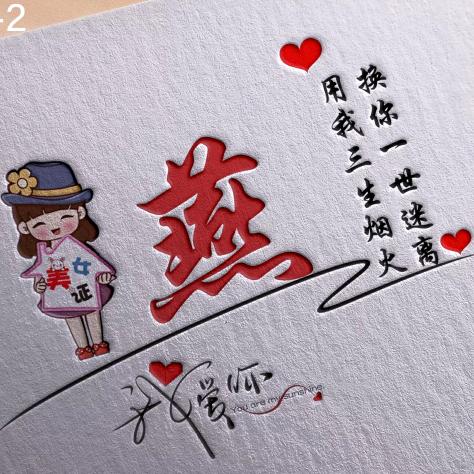 -2
换你一世迷离
用我三生烟火
燕
美女证
我爱你
You are my sunshine